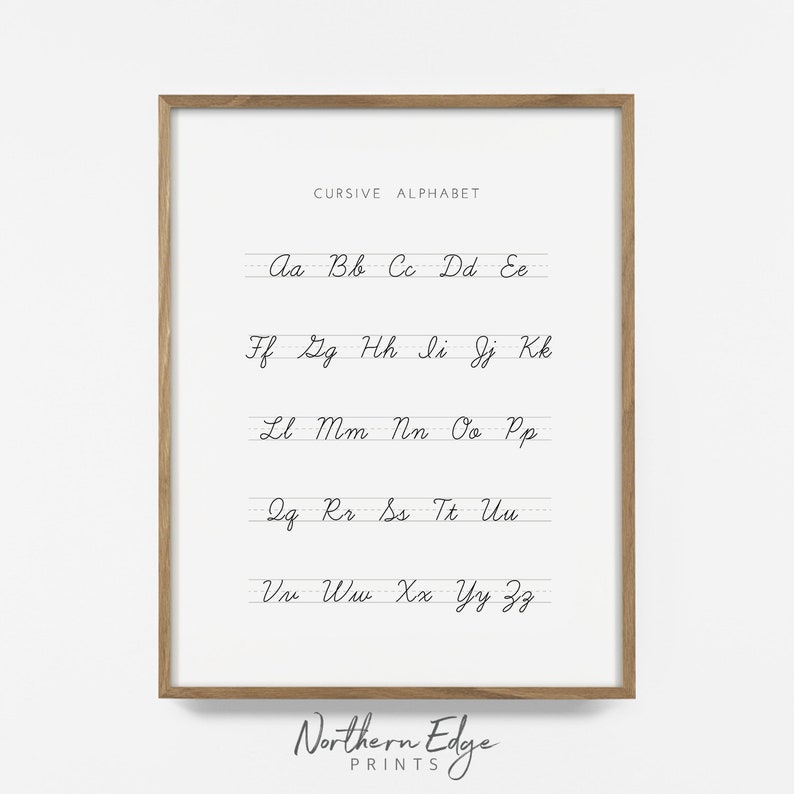 CURSIVE ALPHABET
Aa Bb Cc Dd Ee
Ff Gg Hh Ii Jj Kk
Ll Mm Nn Oo Pp
Qq Rr Ss Tt Uu
Vv Ww Xx Yy Zz
Northern Edge
PRINTS